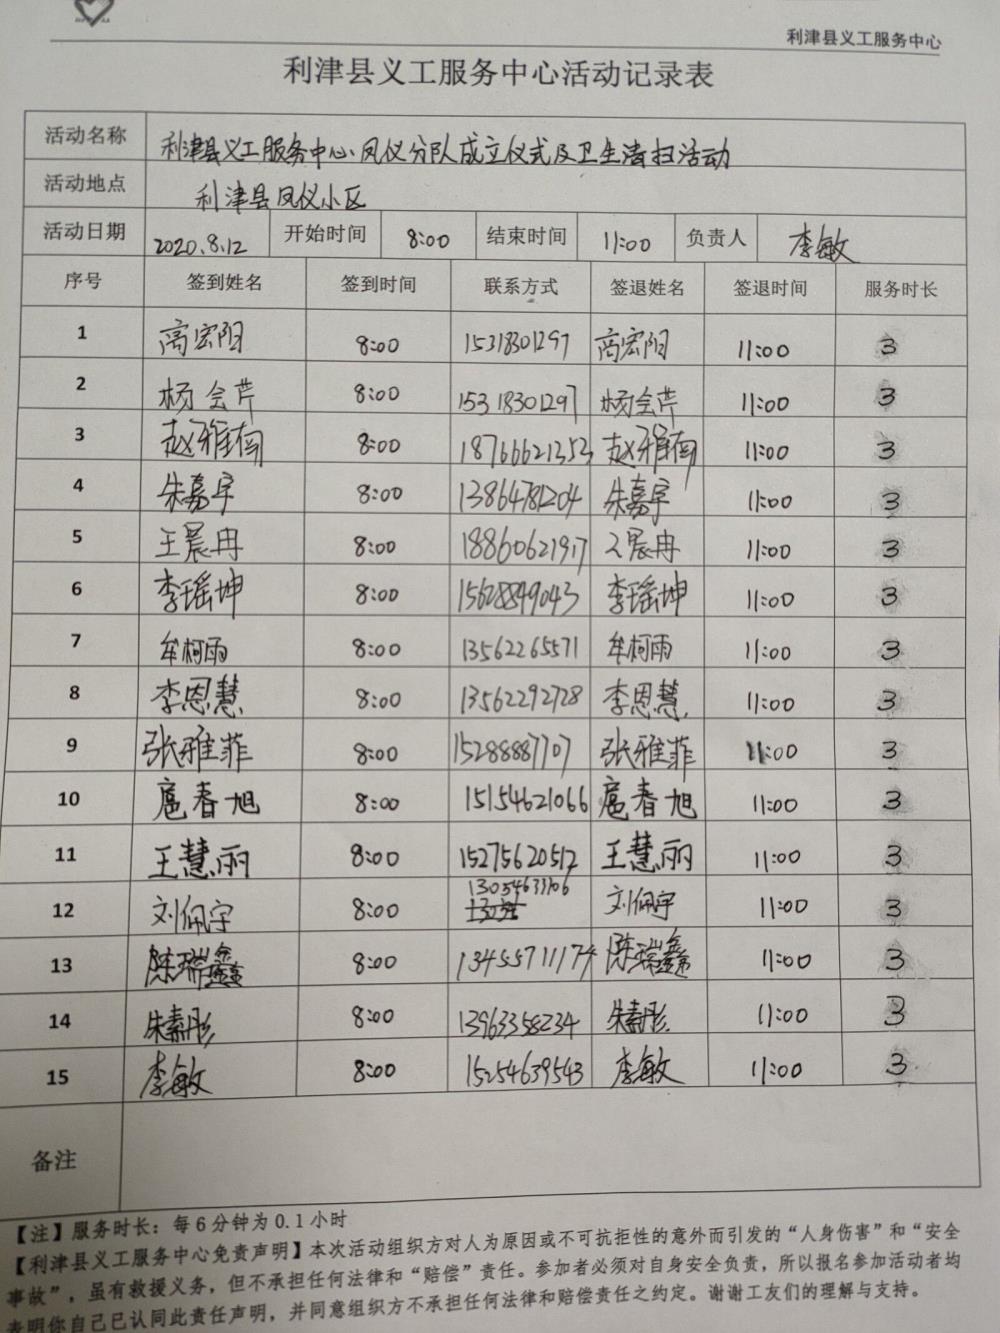 利津县义工服务中心
利津县义工服务中心活动记录表
活动名称 利津县义工服务中心凤仪分队成立仪式及卫生清扫活动
活动地点 利津县凤仪小区
活动日期 2020.8.12 开始时间 8:00 结束时间 11:00 负责人 李敏
序号 签到姓名 签到时间 联系方式 签退姓名 签退时间 服务时长
1 高宏阳 8:00 15318301297 高宏阳 11:00 3
2 杨会芹 8:00 15318301297 杨会芹 11:00 3
3 赵雅楠 8:00 18766621353 赵雅楠 11:00 3
4 朱嘉宇 8:00 13864781204 朱嘉宇 11:00 3
5 王晨冉 8:00 18860621917 王晨冉 11:00 3
6 李瑶坤 8:00 15628849043 李瑶坤 11:00 3
7 牟柯雨 8:00 13562265571 牟柯雨 11:00 3
8 李恩慧 8:00 13562292728 李恩慧 11:00 3
9 张雅菲 8:00 15288887707 张雅菲 11:00 3
10 扈春旭 8:00 15154621066 扈春旭 11:00 3
11 王慧丽 8:00 15275620512 王慧丽 11:00 3
12 刘佩宇 8:00 刘佩宇 11:00 3
13 陈瑞鑫 8:00 13455711174 陈瑞鑫 11:00 3
14 朱素彤 8:00 13963358234 朱素彤 11:00 3
15 李敏 8:00 15254639543 李敏 11:00 3
备注
【注】服务时长：每6分钟为0.1小时
【利津县义工服务中心免责声明】本次活动组织方对人为原因或不可抗拒性的意外而引发的“人身伤害”和“安全
事故”，虽有救援义务，但不承担任何法律和“赔偿”责任。参加者必须对自身安全负责，所以报名参加活动者均
表明你自己已认同此责任声明，并同意组织方不承担任何法律和赔偿责任之约定。谢谢工友们的理解与支持。